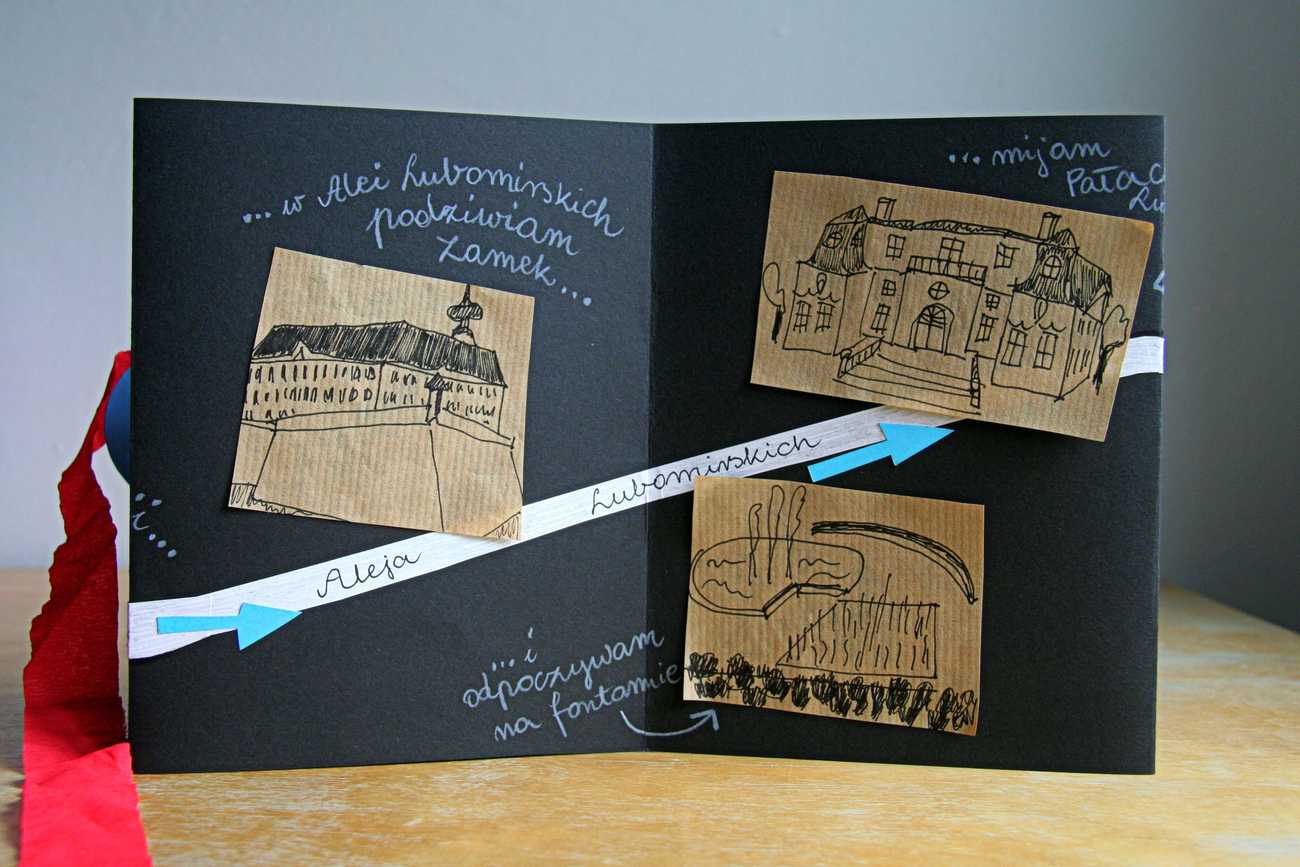 ... w Alei Lubomirskich
podziwiam
Zamek...
i...
Aleja Lubomirskich
...i
odpoczywam
na fontannie
... mijam
Pałac